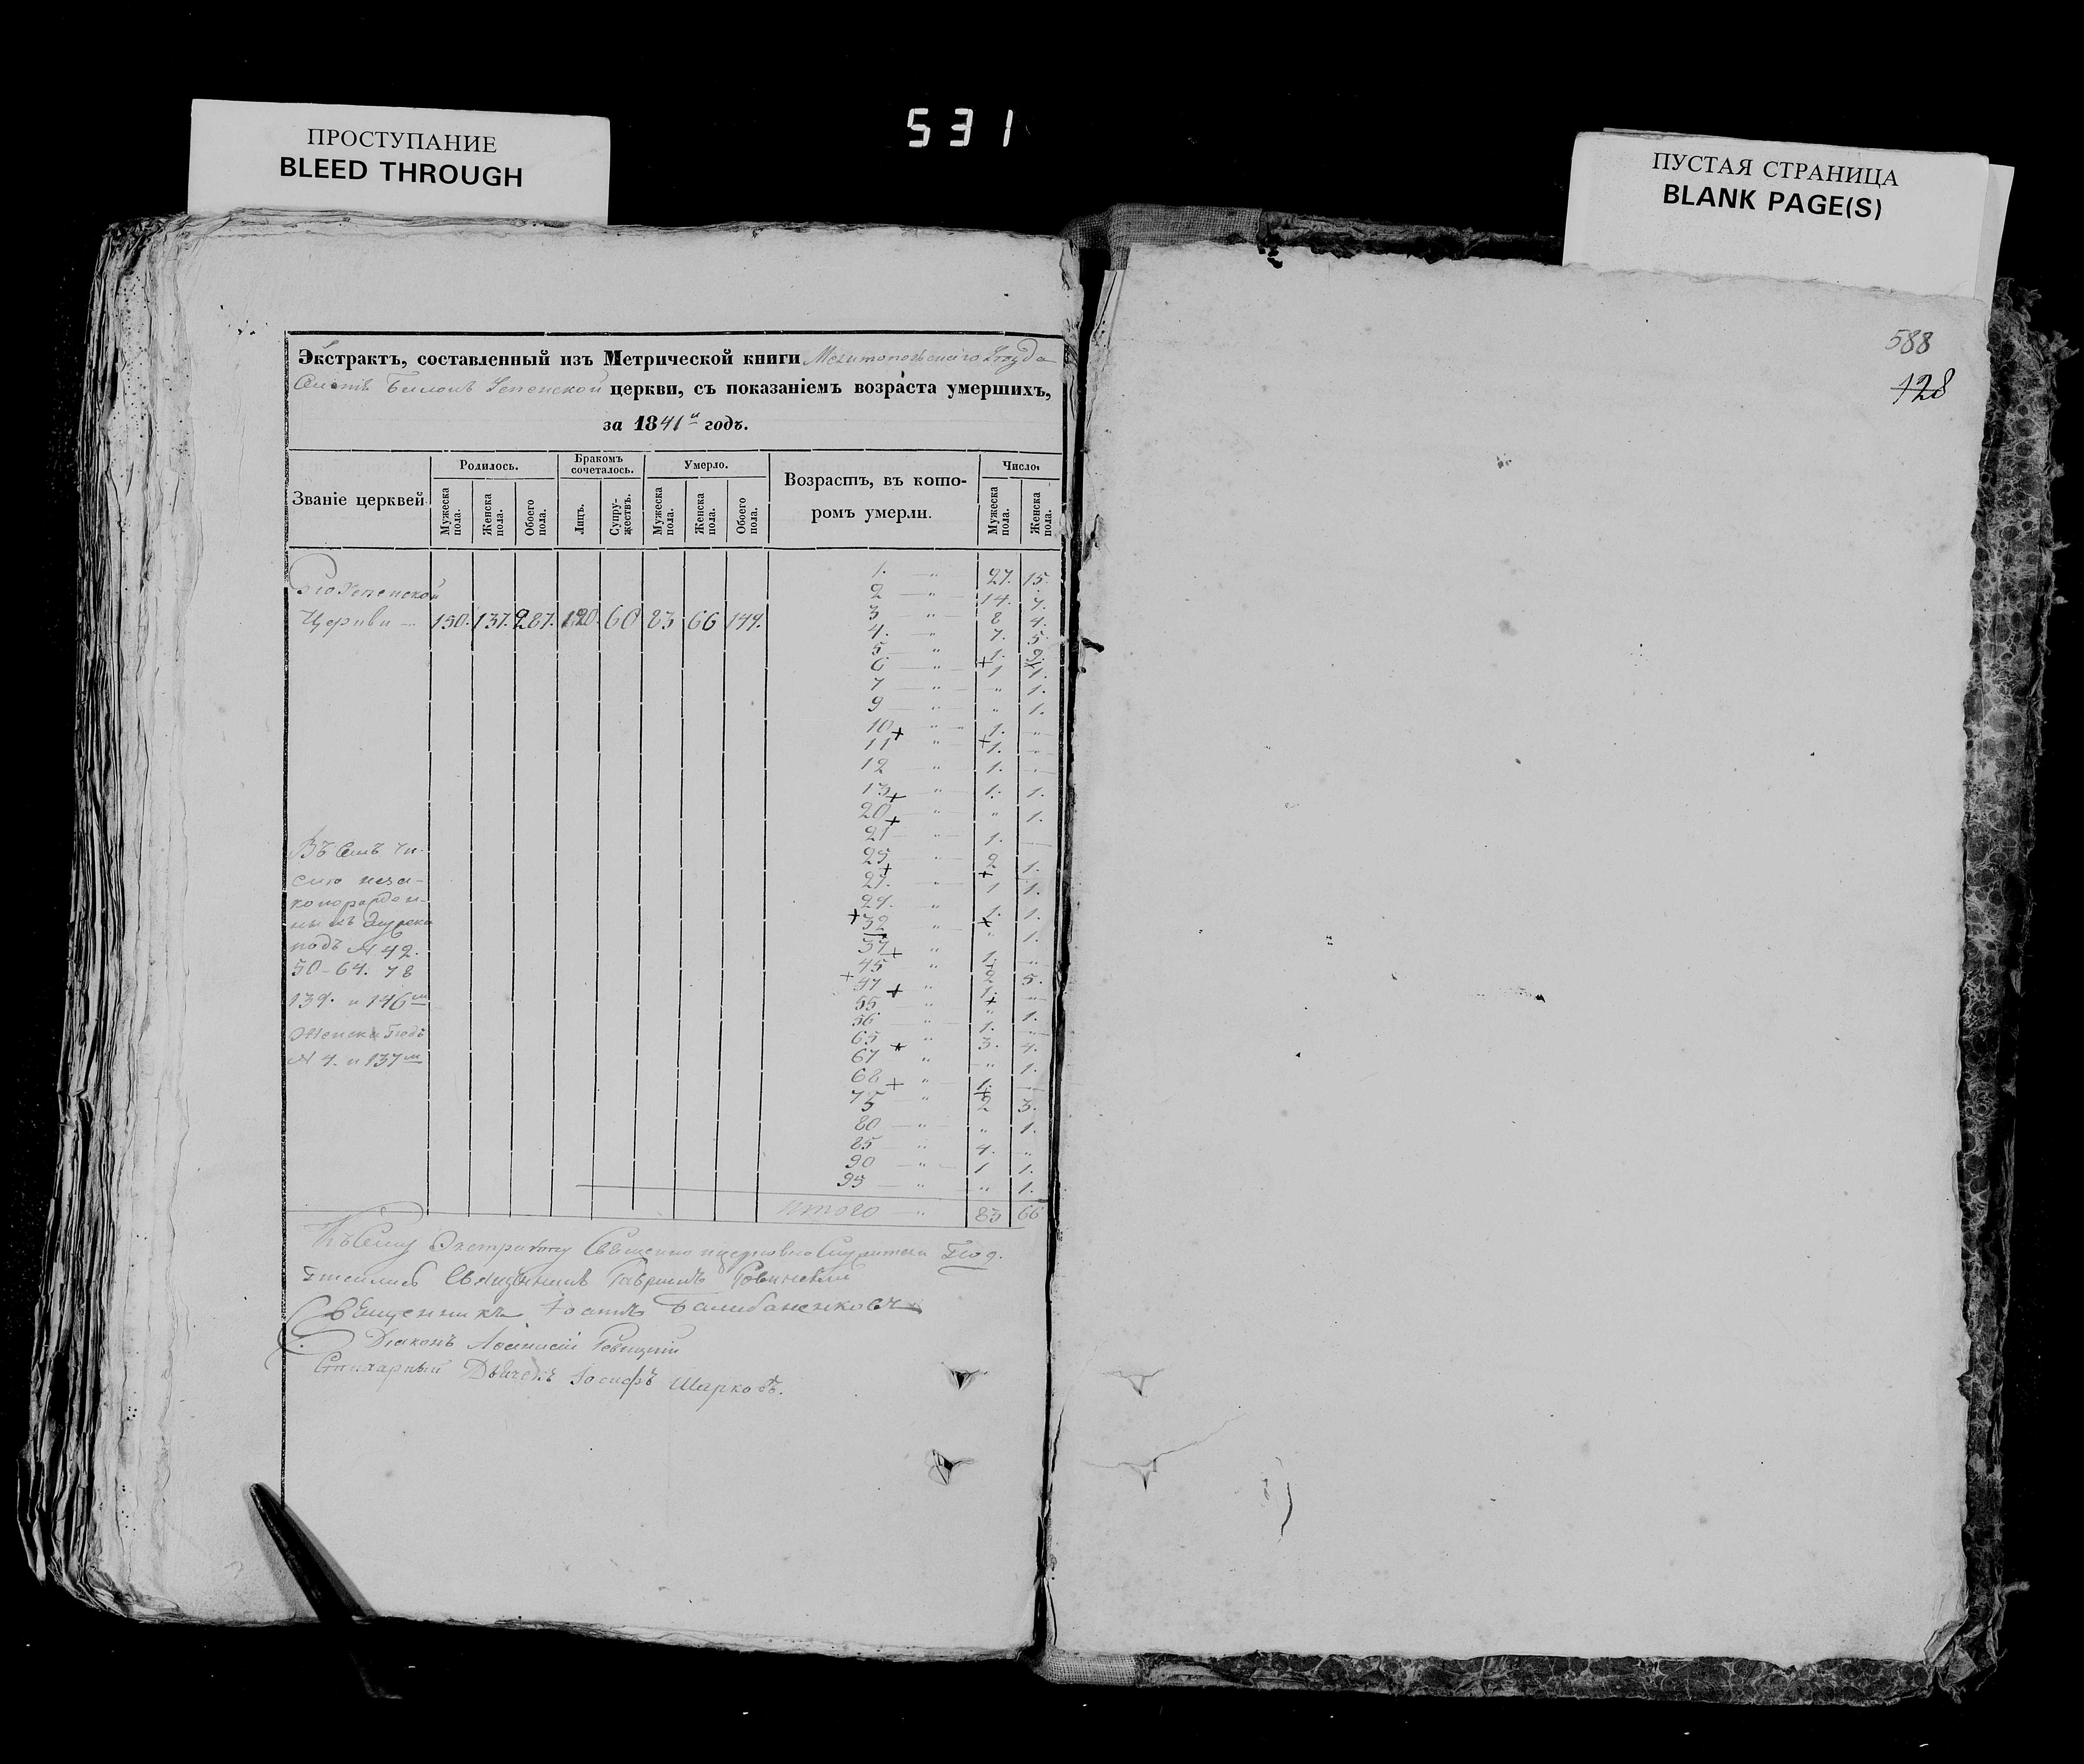 ПРОСТУПАНИЕ
BLEED THROUGH
531
ПУСТАЯ СТРАНИЦА
BLANK PAGE(S)
588
128
Экстрактъ, составленный изъ Метрической книги Мелитопольскаго Уезда
церкви, съ показаніемъ возраста умершихъ,
за 1841й годъ.
Званіе церквей.
Родилось.
Мужеска пола.
Женска пола.
Обоего пола.
Бракомъ сочеталось.
Лицъ.
Супружествъ.
Умерло.
Мужеска пола.
Женска пола.
Обоего пола.
Возрастъ, въ которомъ умерли.
Число.
Мужеска пола.
Женска пола.
Церкви — 150. 137. 287. 120. 60 83 66 149.
1. — " 27. 15.
2 — " 14. 7.
3 — " 8 4.
4. — " 7. 5.
5 — " 1. 2.
6 — " 1 1.
7 — " " 1.
9 — " " 1.
10 — " 1. "
11 " 1. "
12 " 1. "
13 " 1. 1.
20 — " " 1.
21 — " 1. —
25 — " 2 1.
27. " 1 1.
29. " 1. 1.
32 — " " 1.
37 " 1. "
45 " 2 5.
47 " 1. "
55 — " " 1.
56 — " 1. "
65 " 3. 4.
67 " " 1.
68 " 1. —
75 " 2 3.
80 — " " 1.
85 — " 4. "
90 — " 1 1.
95 — " " 1.
Итого — " 83 66
Въ семъ чи-
слѣ неза-
коннорожден-
ныхъ
подъ № 42.
50-64. 78
139. и 146м
Женска подъ
№ 4. и 137м
Къ сему Экстракту Священно церковно служители Под.
писались Священникъ Гавриилъ
Священникъ Іоаннъ
Діаконъ
Стихарный Дьячекъ Іосифъ Шарковъ.